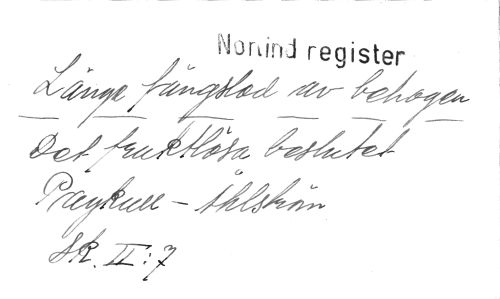 Nomind register
Länge fängslad av behagen
— — — — — —
Det fruktlösa beslutet
Preykull - Åhlström
sk. II:7